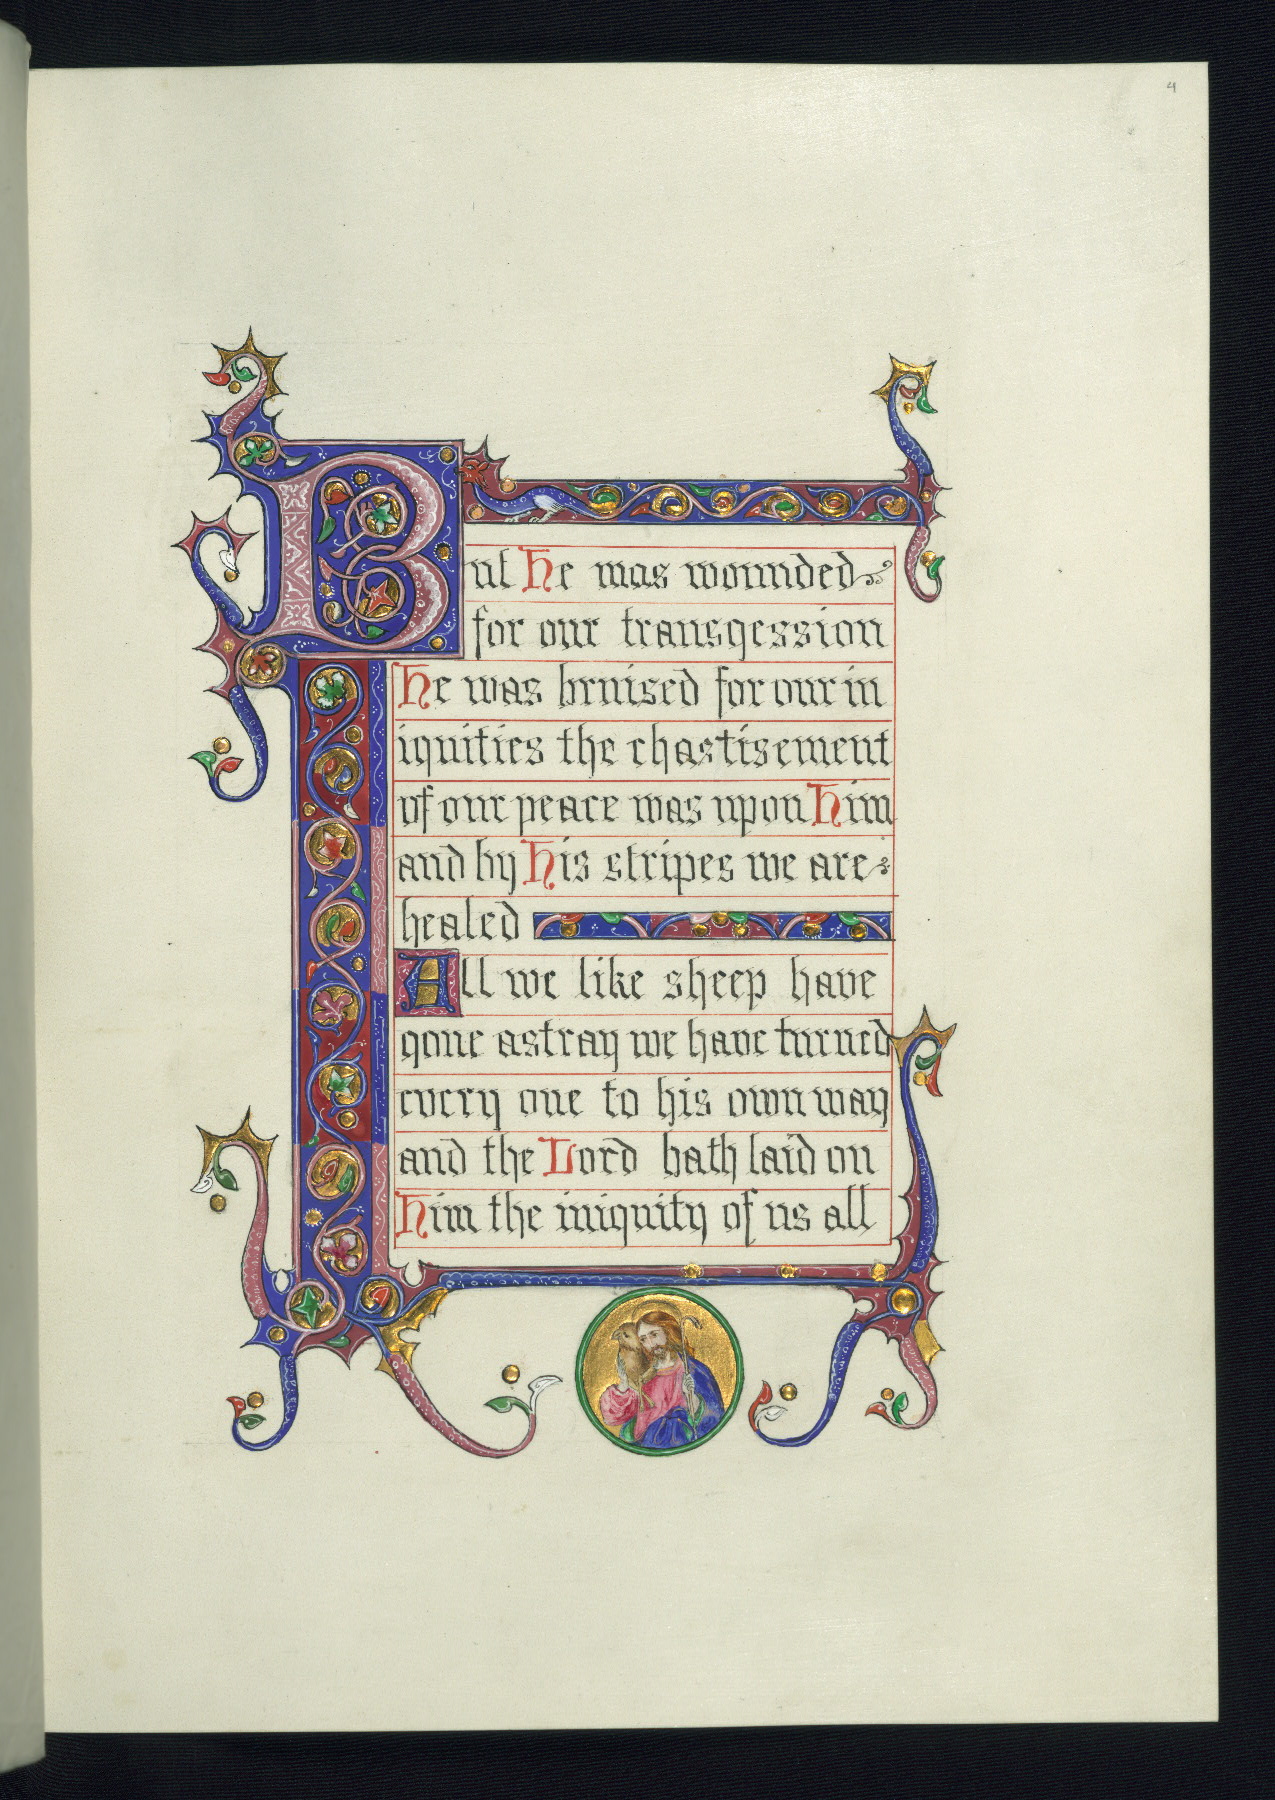 4
But He was wounded
for our transgession
He was bruised for our in
iquities the chastisement
of our peace was upon Him
and by His stripes we are
healed
All we like sheep have
gone astray we have turned
every one to his own way
and the Lord hath laid on
Him the iniquity of us all